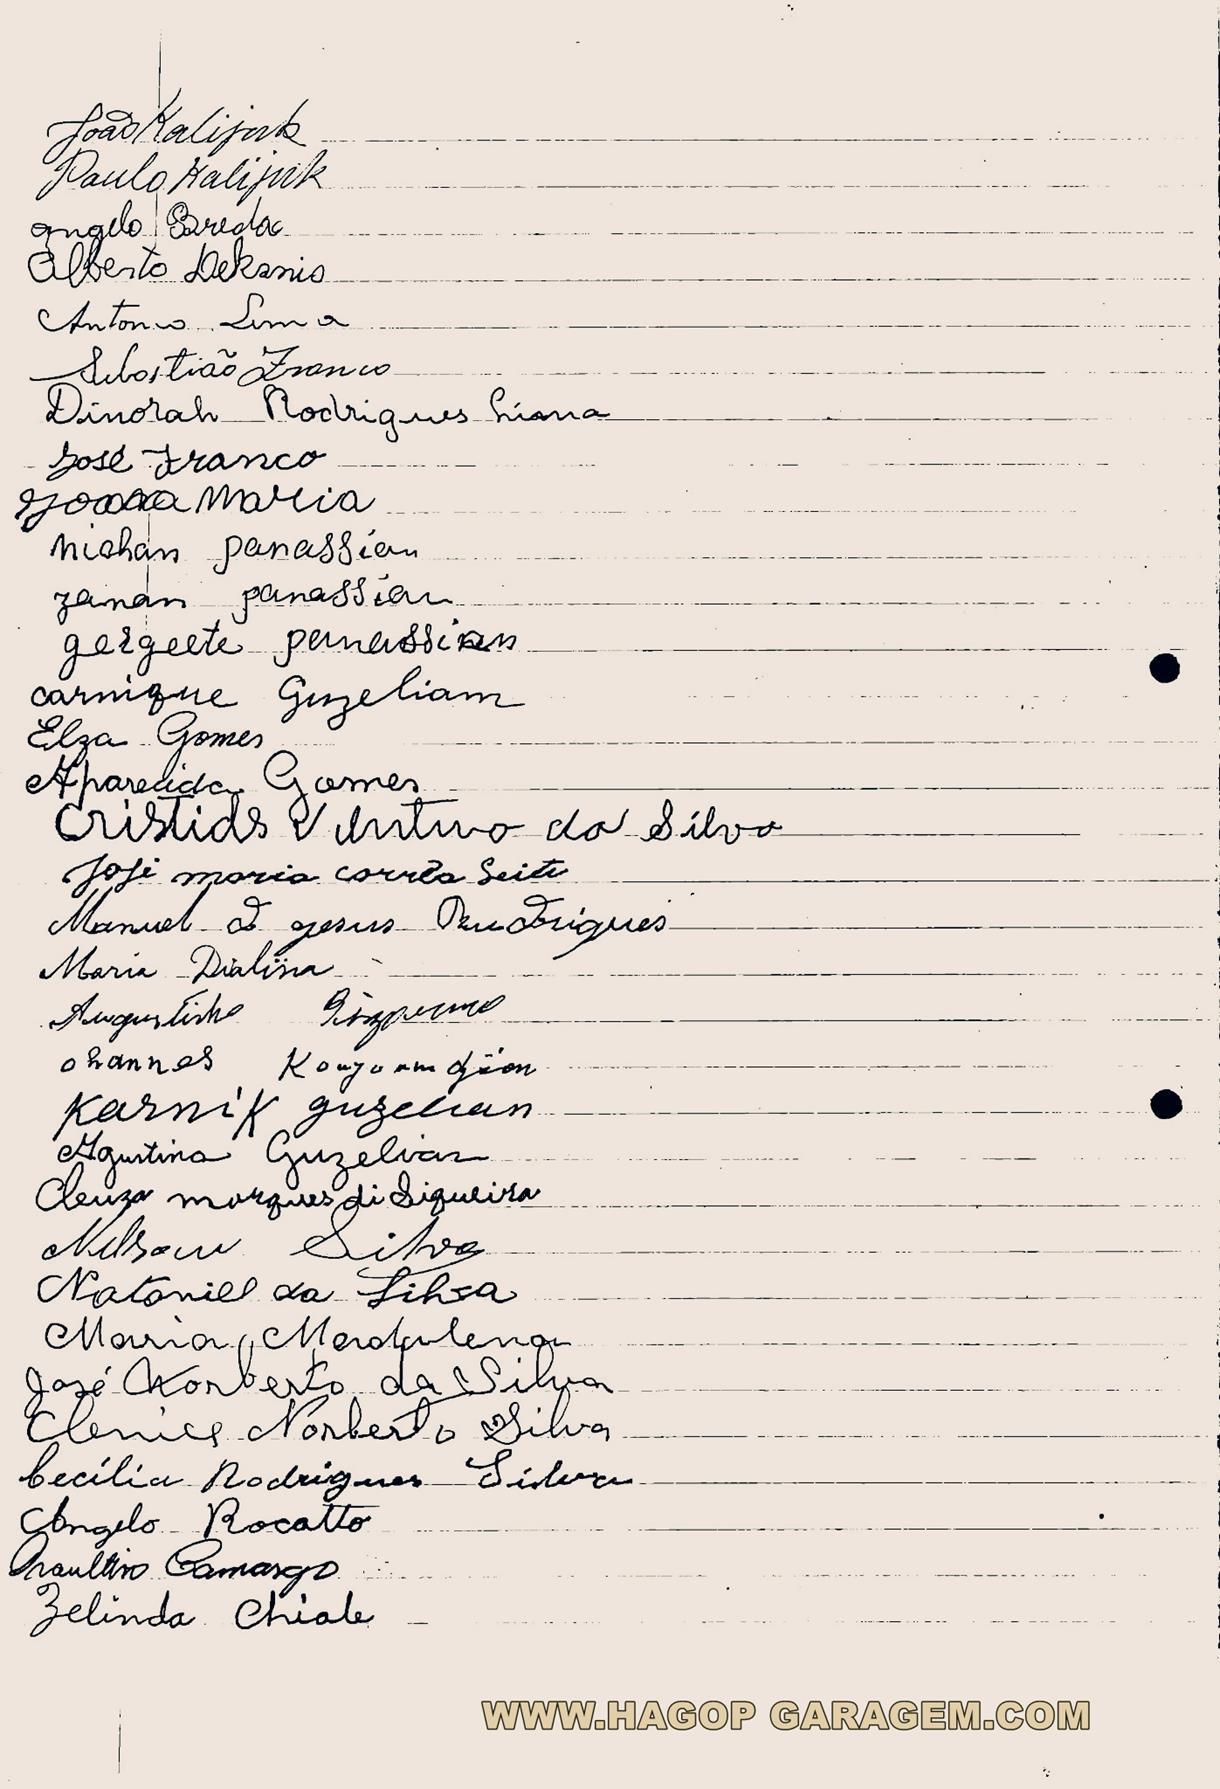 João Kalijuk
Paulo Kalijuk
angelo Breda
Alberto Dekanio
Antonio Lima
Sebastião Franco
Dinorah Rodrigues Liana
José Franco
Joana Maria
nishan panassian
zanan panassian
gergeete panassian
carnique Guzeliam
Elza Gomes
Aparecida Gomes
da Silva
José maria corrêa Leite
Manuel d gesus Rudrigues
Maria Dialina
Augustinho
ohannes Kouyoumdjian
Karnik guzelian
Agustina Guzelian
Cleuza marques di Siqueira
Nelson Silva
Nataniel da Silva
Maria Madalena
José Norberto da Silva
Clenice Norberto Silva
Cecília Rodrigues Silva
Angelo Rocatto
Camargo
Zelinda Chiale
WWW.HAGOP GARAGEM.COM